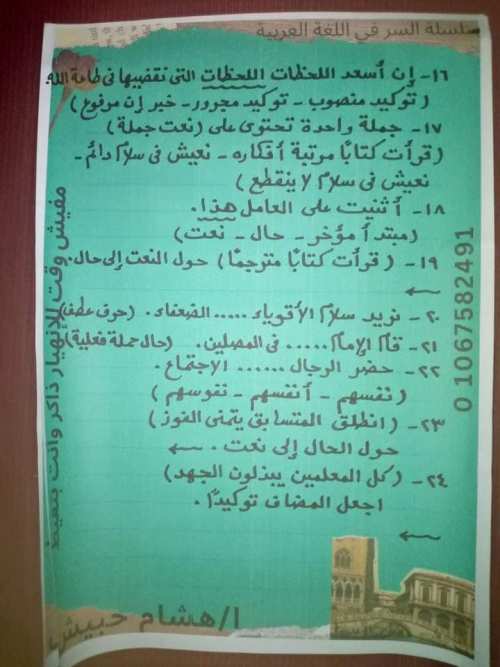 سلسلة السر في اللغة العربية
١٦- إن أسعد اللحظات اللحظات التى نقضيها فى طاعة الله.
(توكيد منصوب - توكيد مجرور - خبر إن مرفوع)
١٧- جملة واحدة تحتوى على (نعت جملة)
(قرأت كتابًا مرتبة أفكاره - نعيش فى سلام دائم -
نعيش فى سلام لا ينقطع)
١٨- أثنيت على العامل هذا.
(مبتدأ مؤخر - حال - نعت)
١٩- (قرأت كتابًا مترجمًا) حول النعت إلى حال.
٢٠- نريد سلام الأقوياء ..... الضعفاء. (حرف عطف)
٢١- قام الإمام ..... فى المصلين. (حال جملة فعلية)
٢٢- حضر الرجال ...... الاجتماع.
(نفسهم - أنفسهم - نفوسهم)
٢٣- (انطلق المتسابق يتمنى الفوز)
حول الحال إلى نعت.
٢٤- (كل المعلمين يبذلون الجهد)
اجعل المضاف توكيدًا.
مفيش وقت للإنهيار ذاكر وانت بتعيط
0 1067582491
ا/هشام حبيش